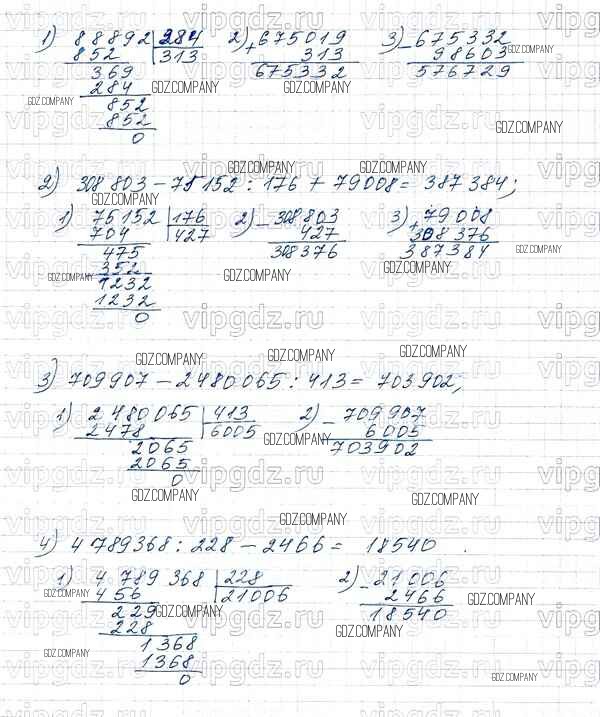 1) 88892 284 2) 675019 3) 675332
852 313 + 313 - 98603
369 675332 576729
284
852
852
0
2) 308 803 - 75152 : 176 + 79008 = 387384;
1) 75152 176 2) - 308803 3) + 79008
704 427 427 308 376
475 308376 387384
352
1232
1232
0
3) 709907 - 2480065 : 413 = 703902,
1) 2480065 413 2) - 709907
2478 6005 6005
2065 703902
2065
0
4) 4789368 : 228 - 2466 = 18540 .
1) 4 789 368 228 2) - 21006
456 21006 2466
229 18540
228
1368
1368
0
vipgdz.ru
GDZ.COMPANY